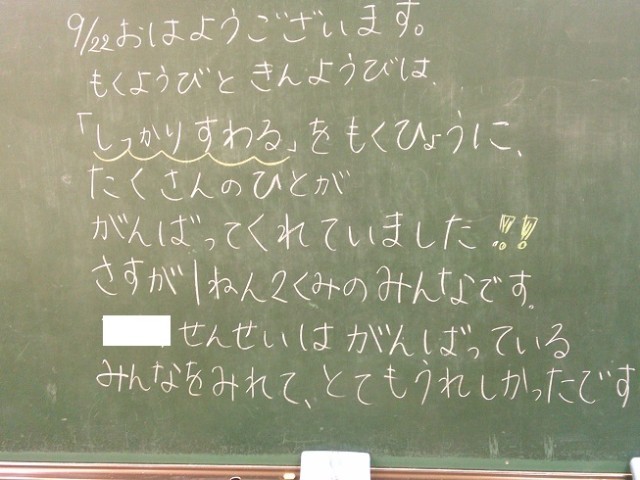 9/22 おはようございます。
もくようびと きんようびは、
「しっかりすわる」を もくひょうに、
たくさんのひとが
がんばってくれていました!!
さすが1ねん2くみのみんなです。
せんせいは がんばっている
みんなをみれて、とてもうれしかったです